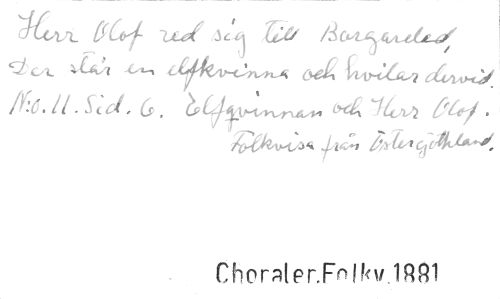 Herr Olof red sig till Borgareled,
Der står en elfkvinna och hvilar dervid.
N:o. 11. Sid. 6. Elfqvinnan och Herr Olof.
Folkvisa från Östergöthland.
Choraler.Folkv.1881